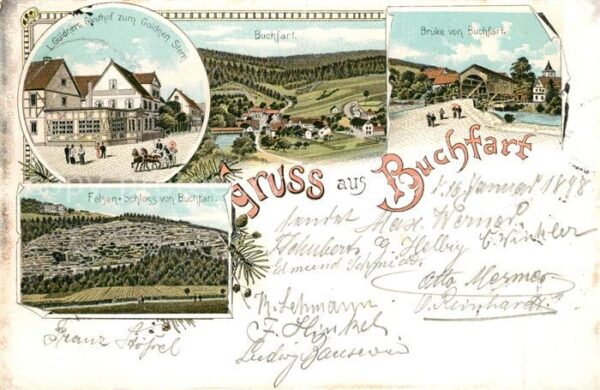 L. Güldner's Gasthof zum Goldnen Stern
Buchfart.
Brüke von Buchfart.
Gruss aus Buchfart
d. 16. Januar 1898
sendet Max Werner
Schubert G Helbig C. Winkler
Edmund Schmidt
Otto Mesmer
O. Reinhardt
Felsen-Schloss von Buchfart.
R. Lehmann
F. Hinkel
Ludwig
Franz